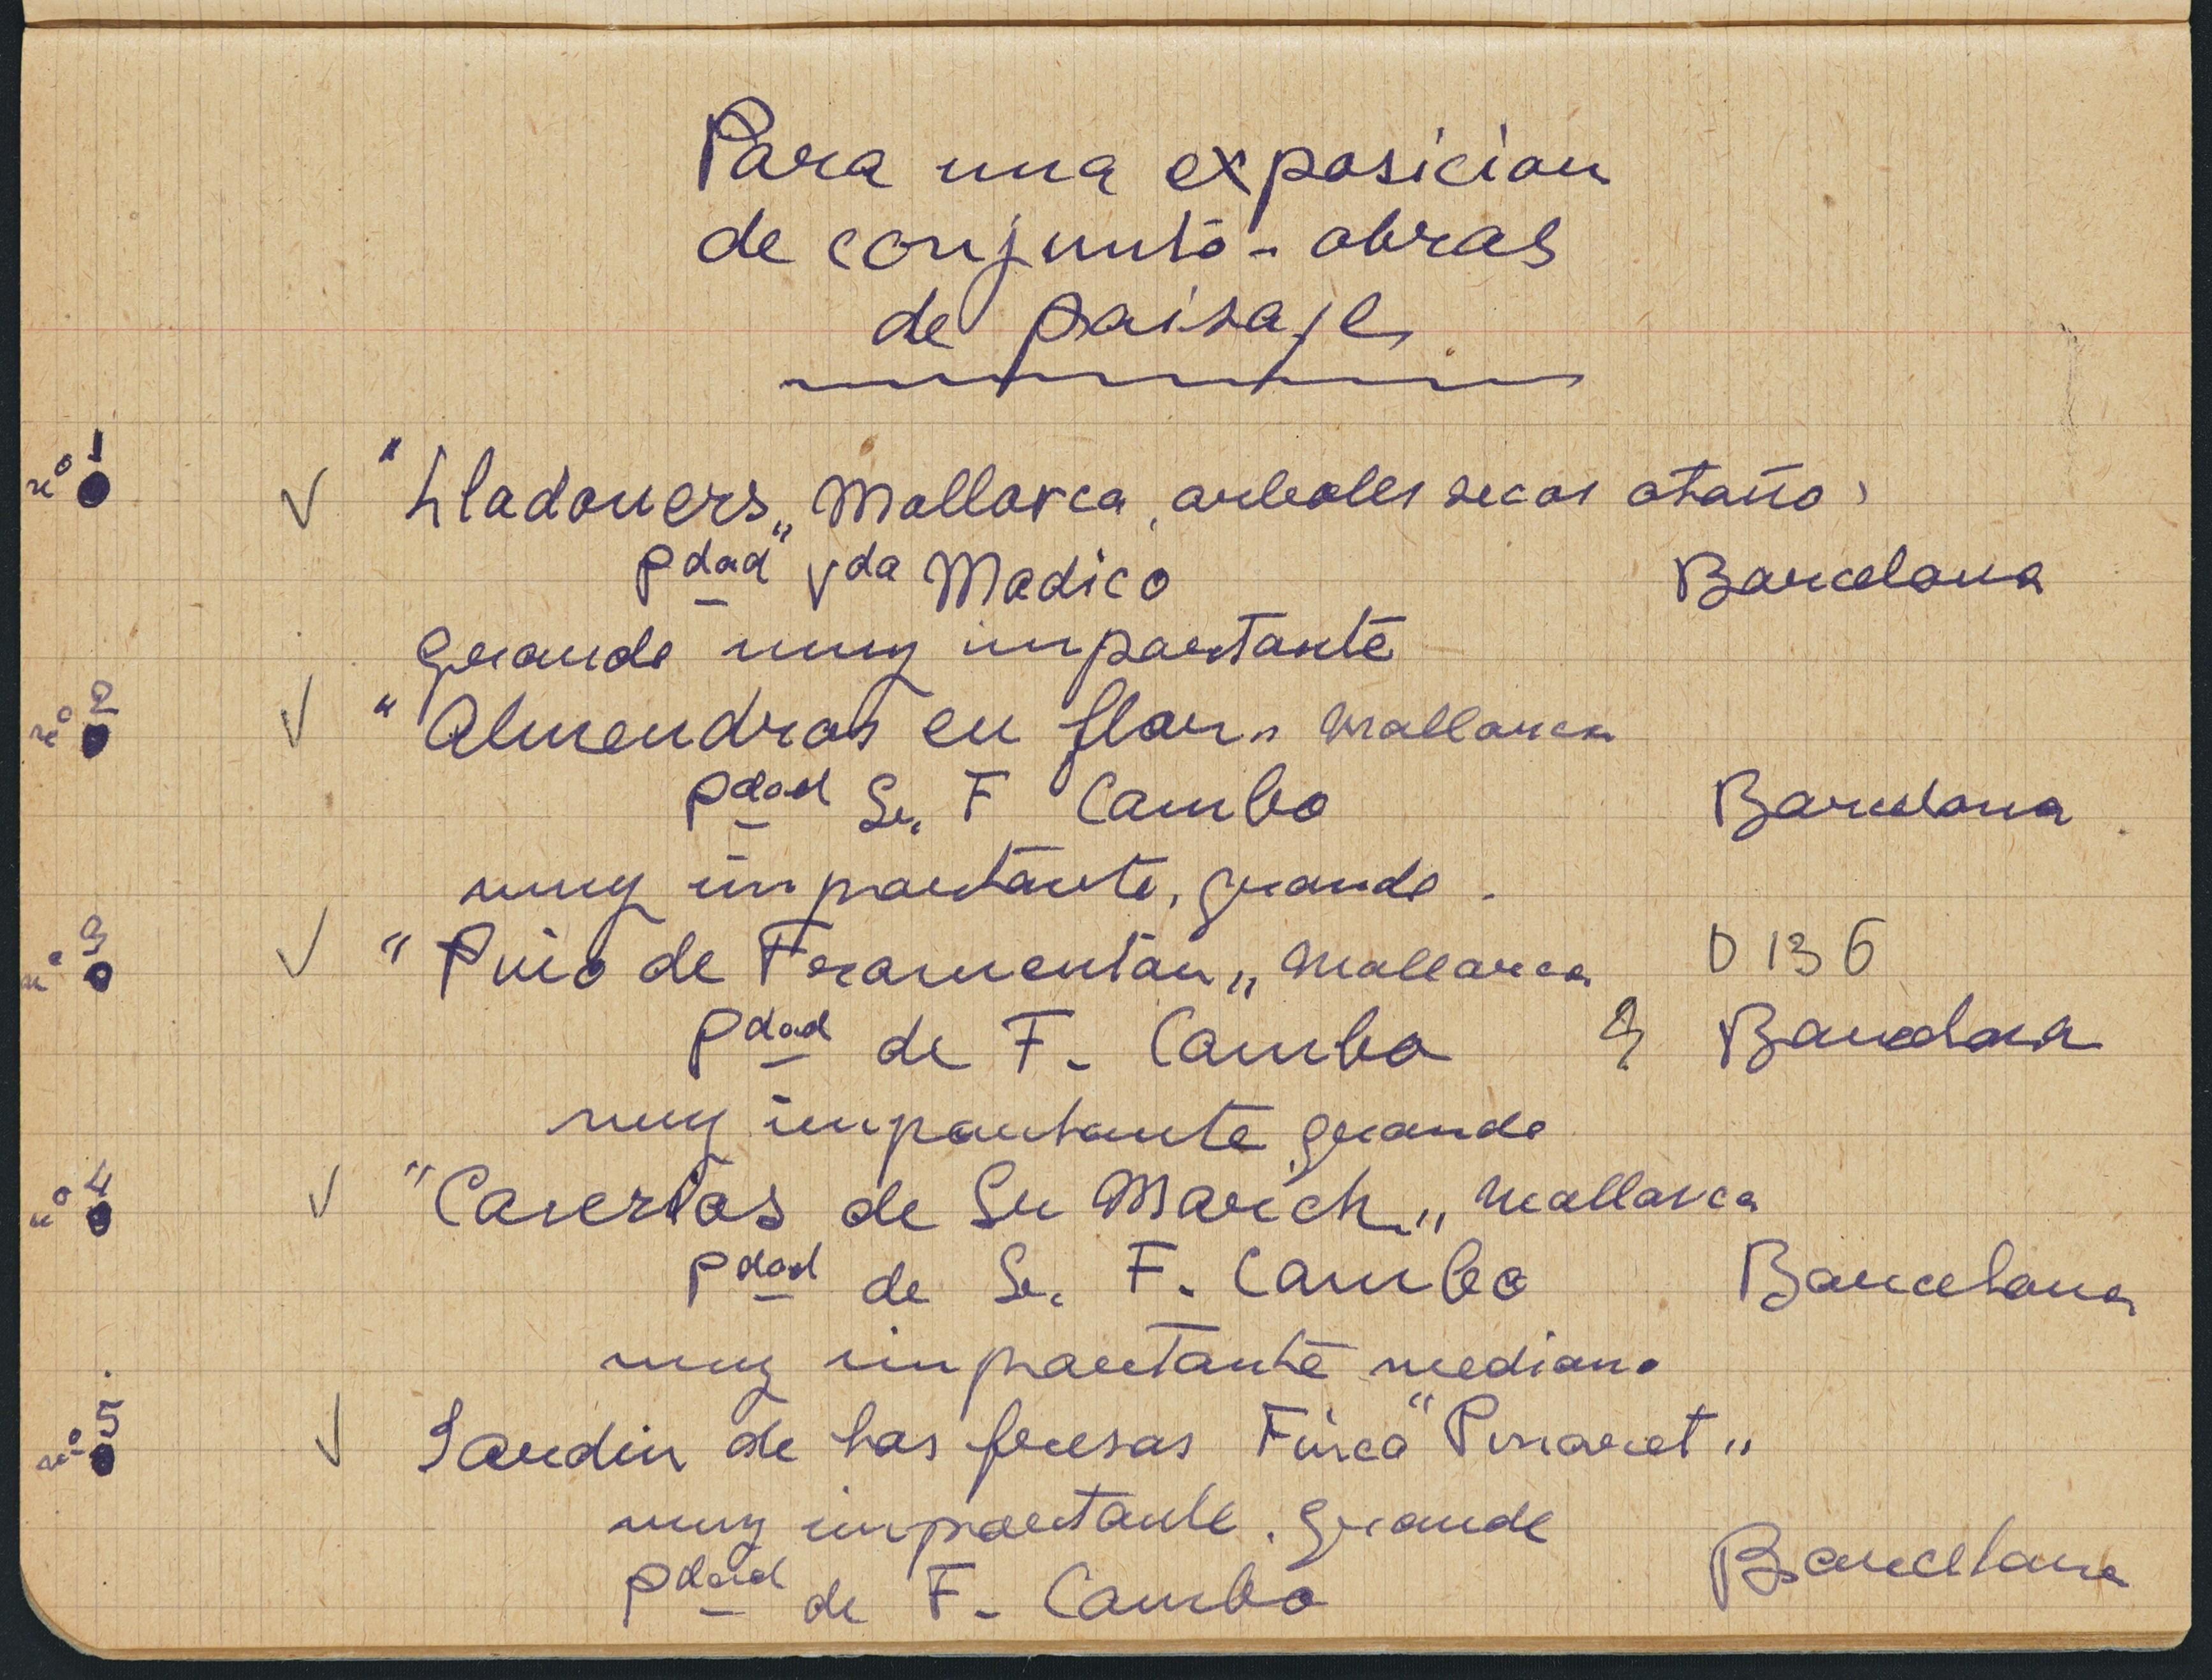 Para una exposicion
de conjunto - obras
de paisaje
nº 1 √ "Lladoners" Mallorca, arboles secos otoño,
pdad Vda Madico Barcelona
grande muy importante
nº 2 √ "Almendros en flor" Mallorca
pdad Sr. F Cambo Barcelona
muy importante, grande.
nº 3 √ "Pino de Foramentan" Mallorca 0136
pdad de F. Cambo Barcelona
muy importante grande
nº 4 √ "Caserios de Su March" Mallorca
pdad de Sr. F. Cambo Barcelona
muy importante mediano
nº 5 √ Jardin de las fresas Finca "Pinaret"
muy importante. grande
pdad de F. Cambo Barcelona